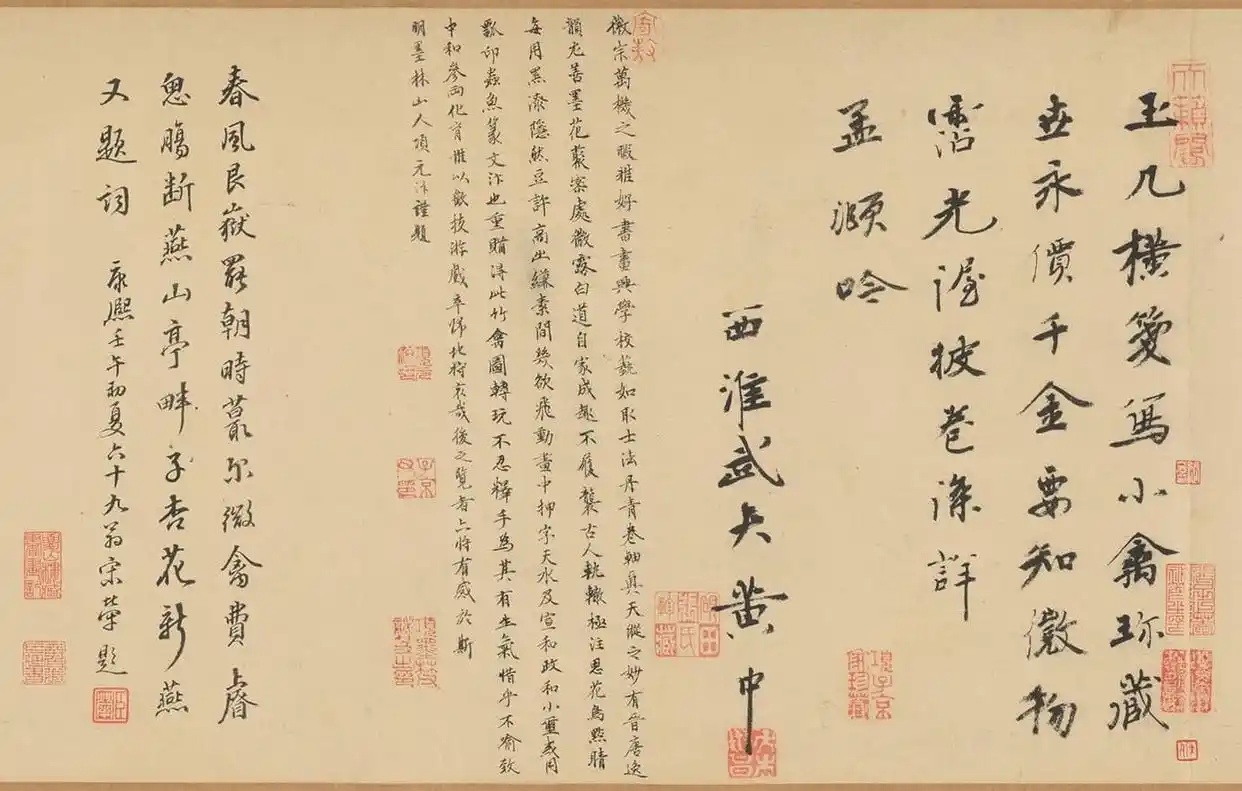 玉几橫箋寫小禽珍藏
世永價千金要知微物
霑光渥披卷深詳
孟頫吟
西淮武夫黃中
徽宗萬機之暇雅好書畫興學校藝如取士法丹青卷軸具天縱之妙有晉唐逸
韻尤善墨花叢密處微露白道自家成趣不履襲古人軌轍極注思花鳥點睛
每用黑漆隱然豆許高出縑素間幾欲飛動畫中押字天水及宣和政和小璽或用
瓢印蟲魚篆文洵也重購得此竹禽圖轉玩不忍釋手為其有生氣惜乎不審致
中和參兩化育惟以欹技游戲卒歸北狩哀哉後之覽者亦將有感於斯
明墨林山人項元汴謹題
春風艮嶽罷朝時蕞尔微禽費睿
思腸斷燕山亭畔子杏花新燕
又題詞 康熙壬午初夏六十九翁宋犖題